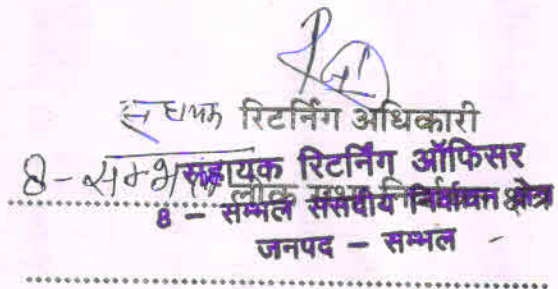 सहायक रिटर्निंग अधिकारी
सहायक रिटर्निंग ऑफिसर
8-सम्भल लोक सभा निर्वाचन क्षेत्र
8 - सम्भल संसदीय निर्वाचन क्षेत्र
जनपद - सम्भल